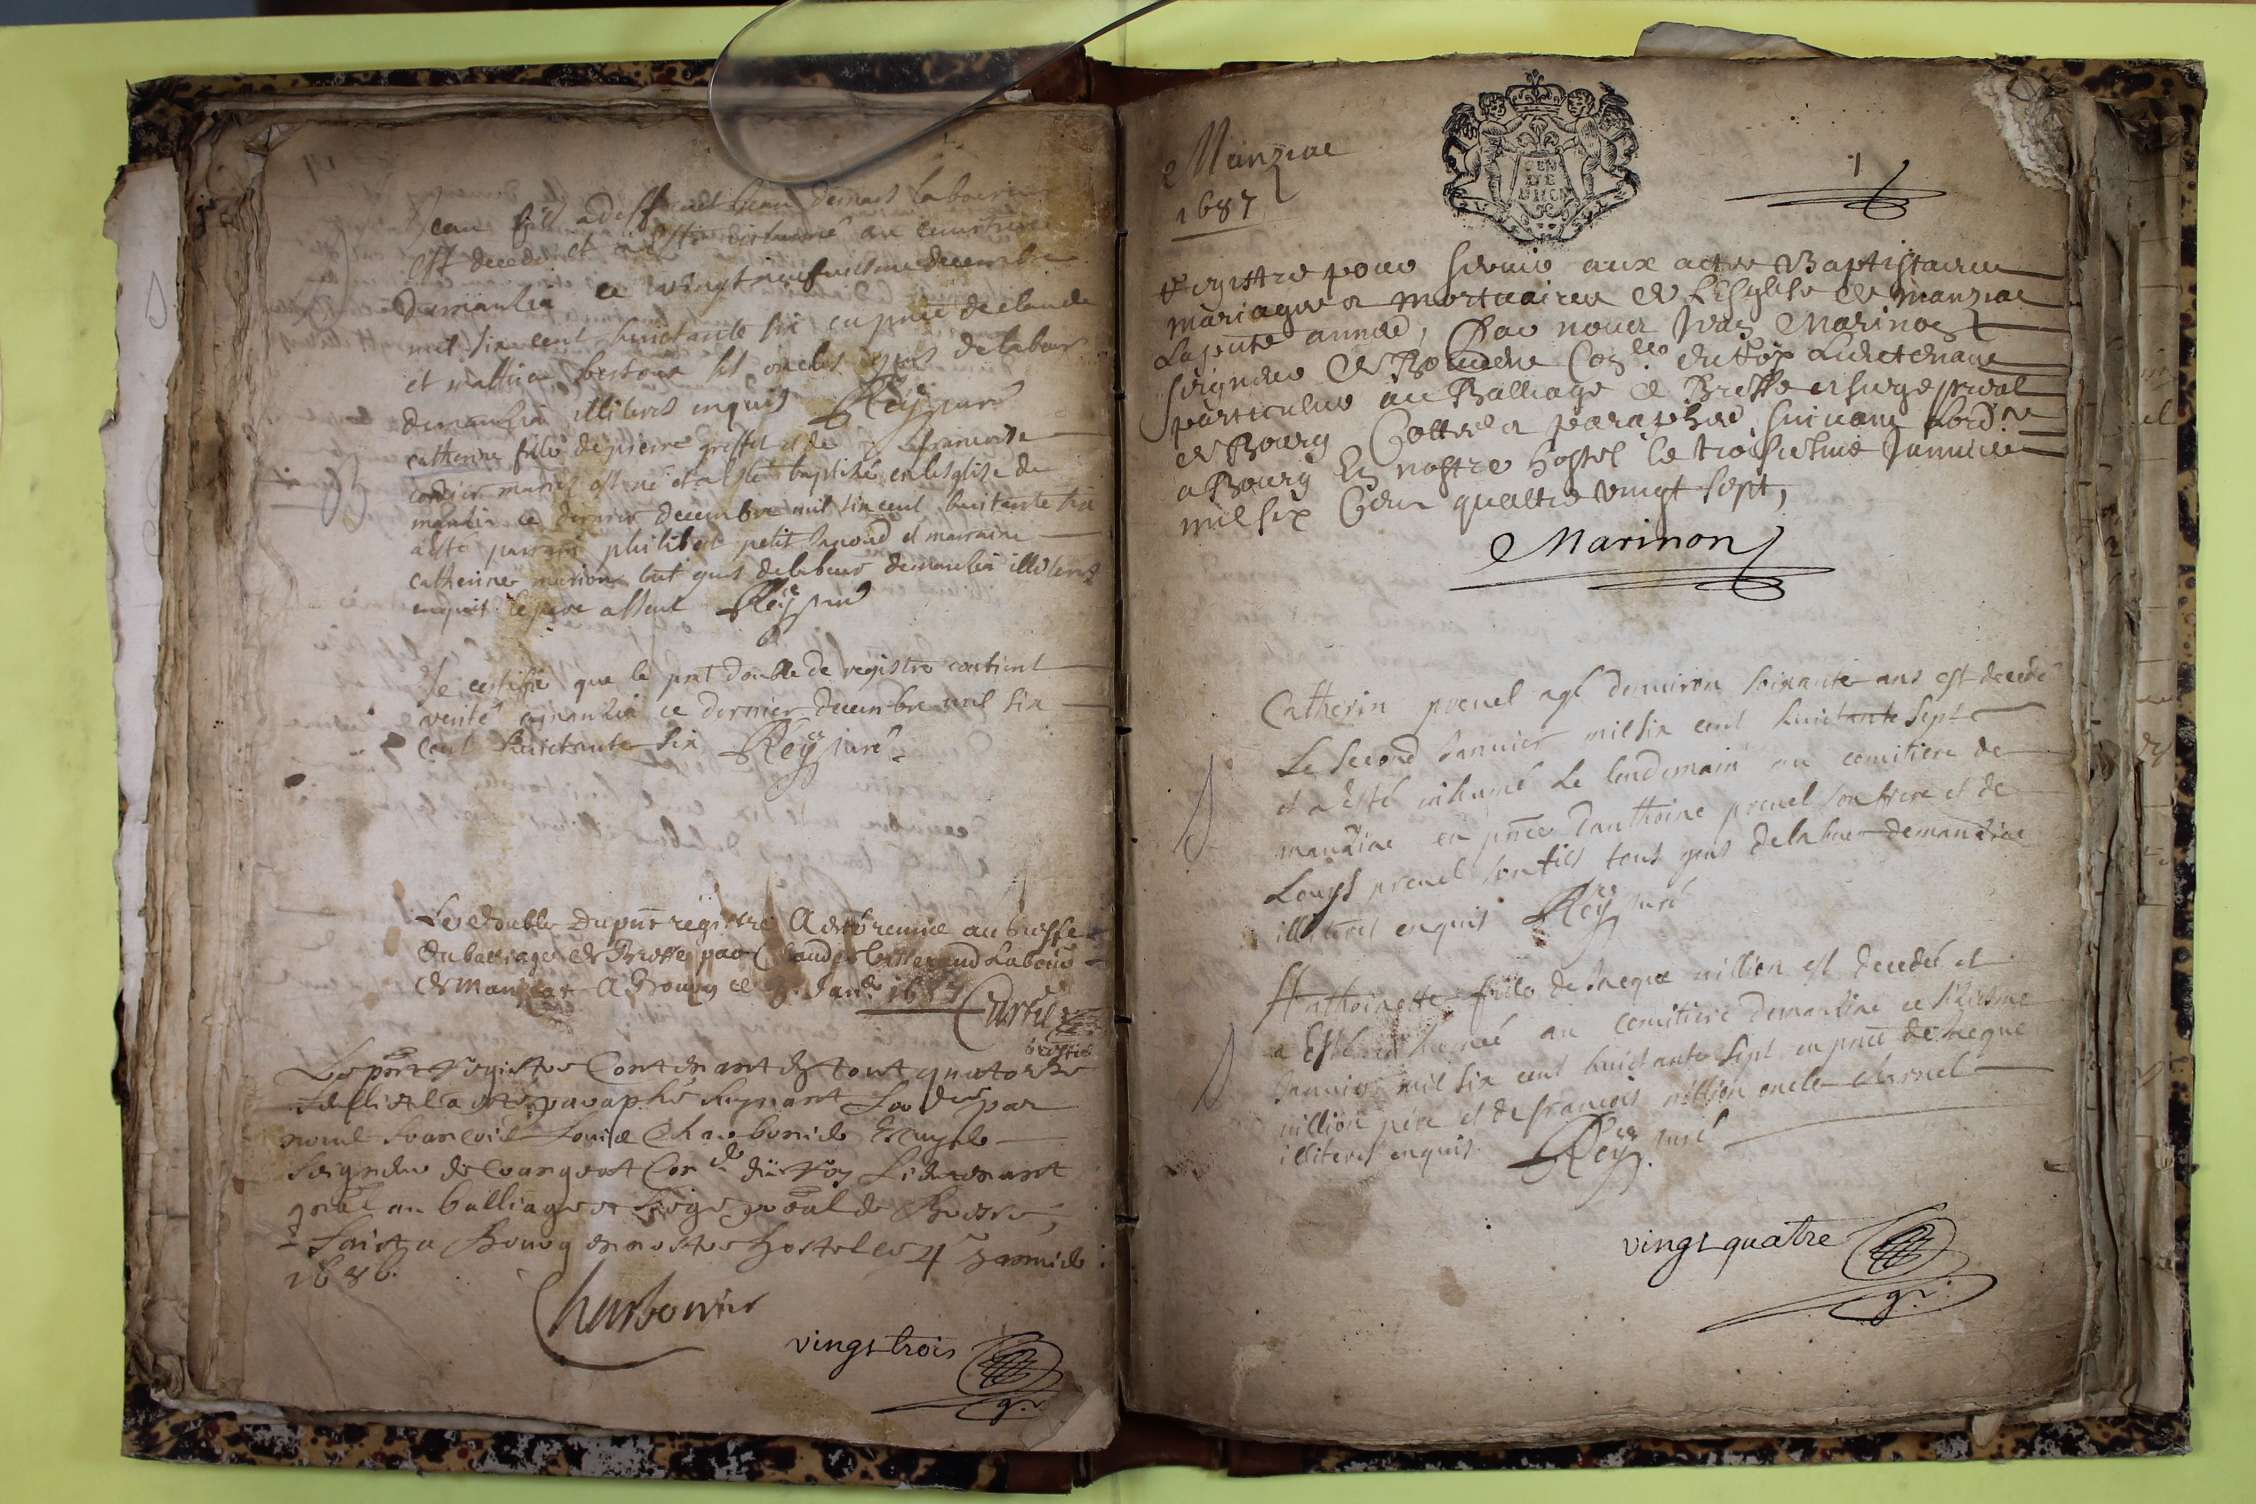 Jean fils a deffunct Jean demars laboureur
est decedé et a esté inhumé au cimitiere
demanzia le vingt neufviesme decembre
mil six cent huictante six en pnce de claude
et mathieu bertoux ses oncles gens de labeur
demanzia illiteres enquis Rey curé
catherine fille de pierre greffet et de francoise
cordier mariés est né et a esté baptisée en lesglise de
manzia ce dernier decembre mil six cent huitante six
a esté parrain philibert petit Janond et marraine
catherine marion tout gens delabeur demanzia illiteres
enquis le pere absent Rey curé
Je certifie que le pnt double de registre contient
verité a manzia ce dernier decembre mil six
cent huictante six Rey curé
Le double du pnt registre a esté remise au greffe
du balliage de Bresse par Claude laboureur
de Manziat A Bourg ce Janer 1687
Curtil
greffier
Le pnt Registre Contenant en tout quatorze
feulliet a esté paraphé suyvant Lor par
nous francois Louis Charbonnier Escuyer
Seigneur de Crangeat Coner du Roy Lieutenant
gnal au balliage et siege pral de Bresse,
faict a Bourg en nostre hostel le 4 Janvier
1686.
Charbonnier
vingt trois
Manziat
1687
1
Registre pour servir aux actes Baptistaires
mariages et mortuaires de L'Esglise de Manziat
la pnte année, Par nous Jean Marinon
seigneur de Conller du Roy Lieutenant
particulier au Balliage de Bresse et siege pral
de Bourg Cotté et paraphée, suivant Lordce
a Bourg En nostre hostel le troisiesme Janvier
mil six Cent quattre vingt sept,
Marinon
Catherin prevel agé denviron soixante ans est decedé
le second Janvier mil six cent huictante sept
et a esté inhumé le lendemain au cemitiere de
manziat en pnce danthoine prevel son frere et de
Louys prevel son fils tous gens delabeur demanziat
illiteres enquis Rey curé
Anthoinette fille de Jacque nillion est decedée et
a Esté inhumée au cemitiere demanziat ce sixiesme
Janvier mil six cent huictante sept en pnce de Jacque
nillion pere et de francois nillion oncle charnel
illiteres enquis. Rey curé
vingt quatre